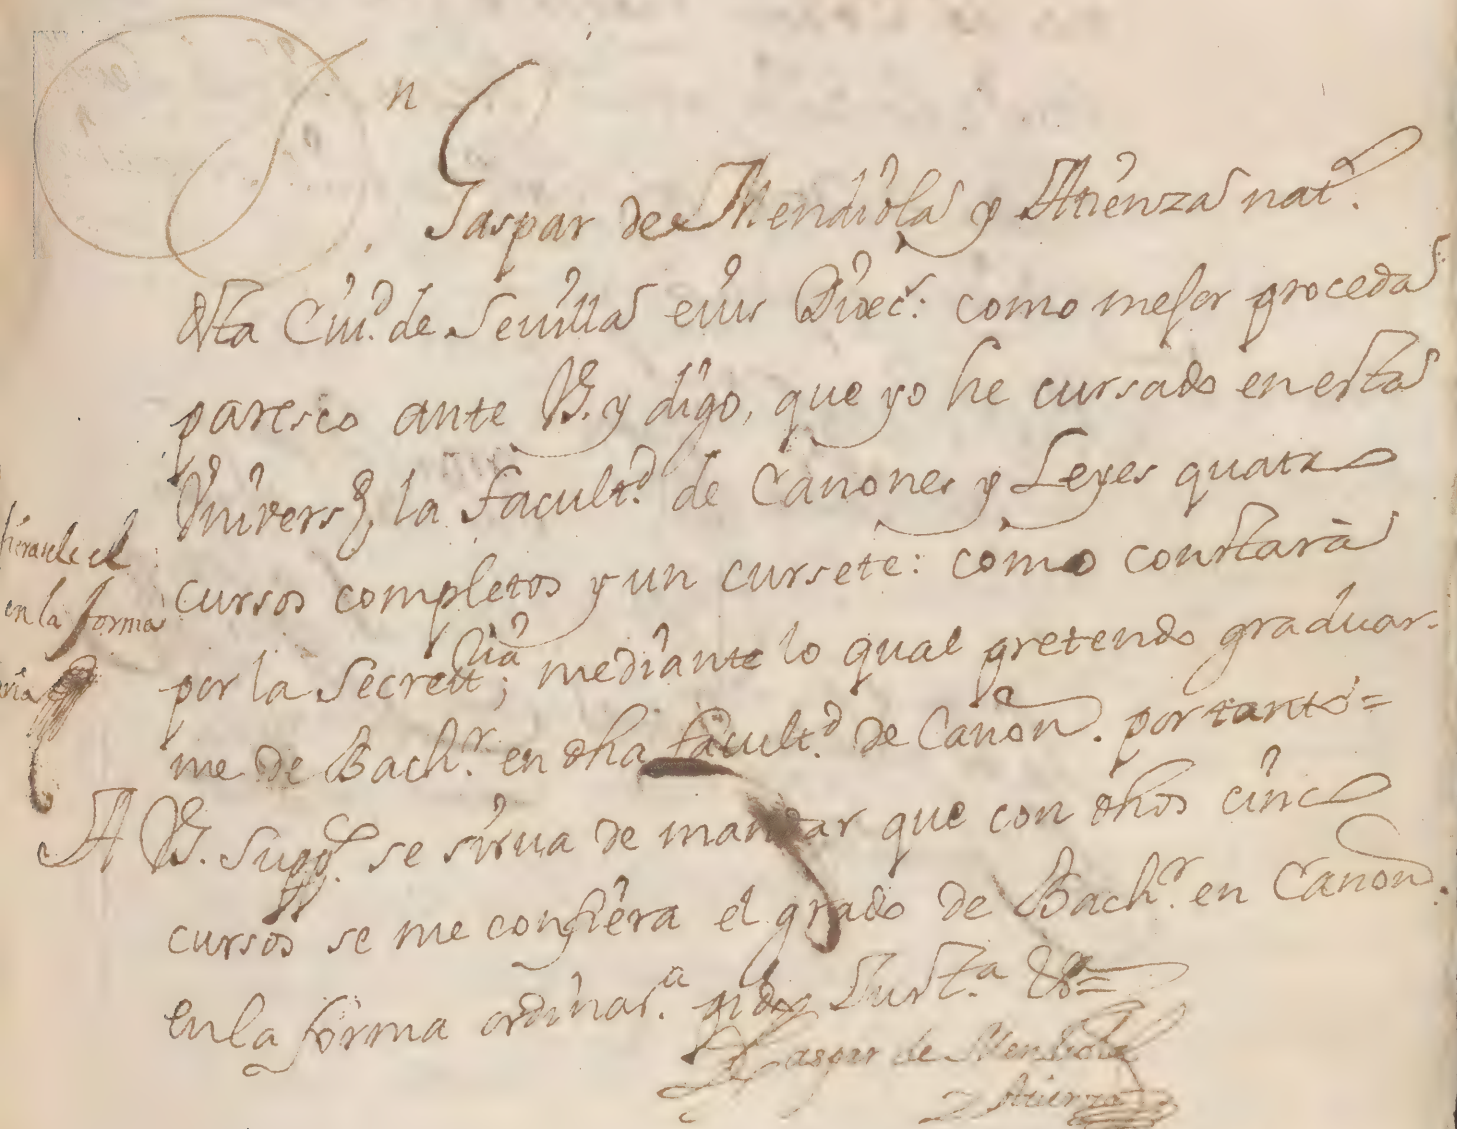 Sn
Gaspar de Mendiola y Atienza nat.l
desta Ciu.d de Sevilla
como mejor proceda
paresco ante VS. y digo, que yo he cursado en esta
Univers.d la facult.d de Canones y Leyes quatro
cursos completos y un cursete: como constarà
por la Secret.ria; mediante lo qual pretendo graduar-
me de Bach.r en dha facult.d de Canon. por tanto=
A VS. Supp.co se sirva de mandar que con dhos cinco
cursos se me confiera el grado de Bach.r en Canon.
en la forma ordinar.a pido Just.a &a=
Gaspar de Mendiola
y Atienza
fierasele el
en la forma
ria